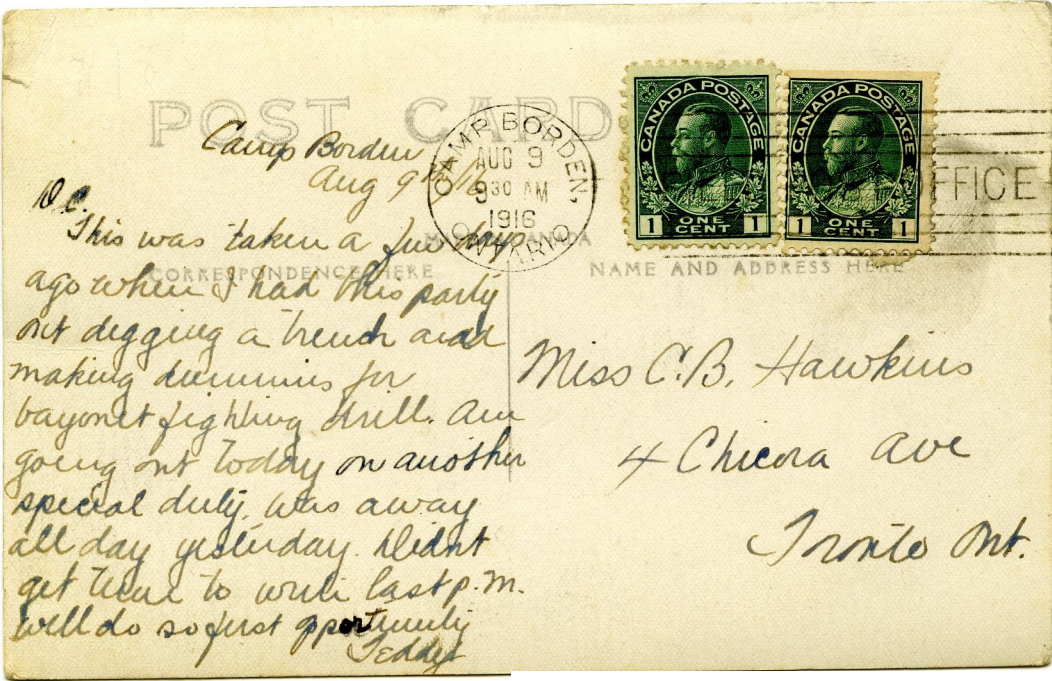 POST CARD
Camp Borden
Aug 9th/16
D.C.
This was taken a few days
ago when I had this party
out digging a trench and
making dummies for
bayonet fighting drill. Am
going out today on another
special duty, was away
all day yesterday. Didnt
get time to write last p.m.
Will do so first opportunity
Teddy
CORRESPONDENCE HERE
CANADA
NAME AND ADDRESS HERE
CAMP BORDEN,
AUG 9
930 AM
1916
ONTARIO
CANADA POSTAGE
1 ONE CENT 1
CANADA POSTAGE
1 ONE CENT 1
FFICE
Miss C.B. Hawkins
4 Chicora Ave
Tronto Ont.